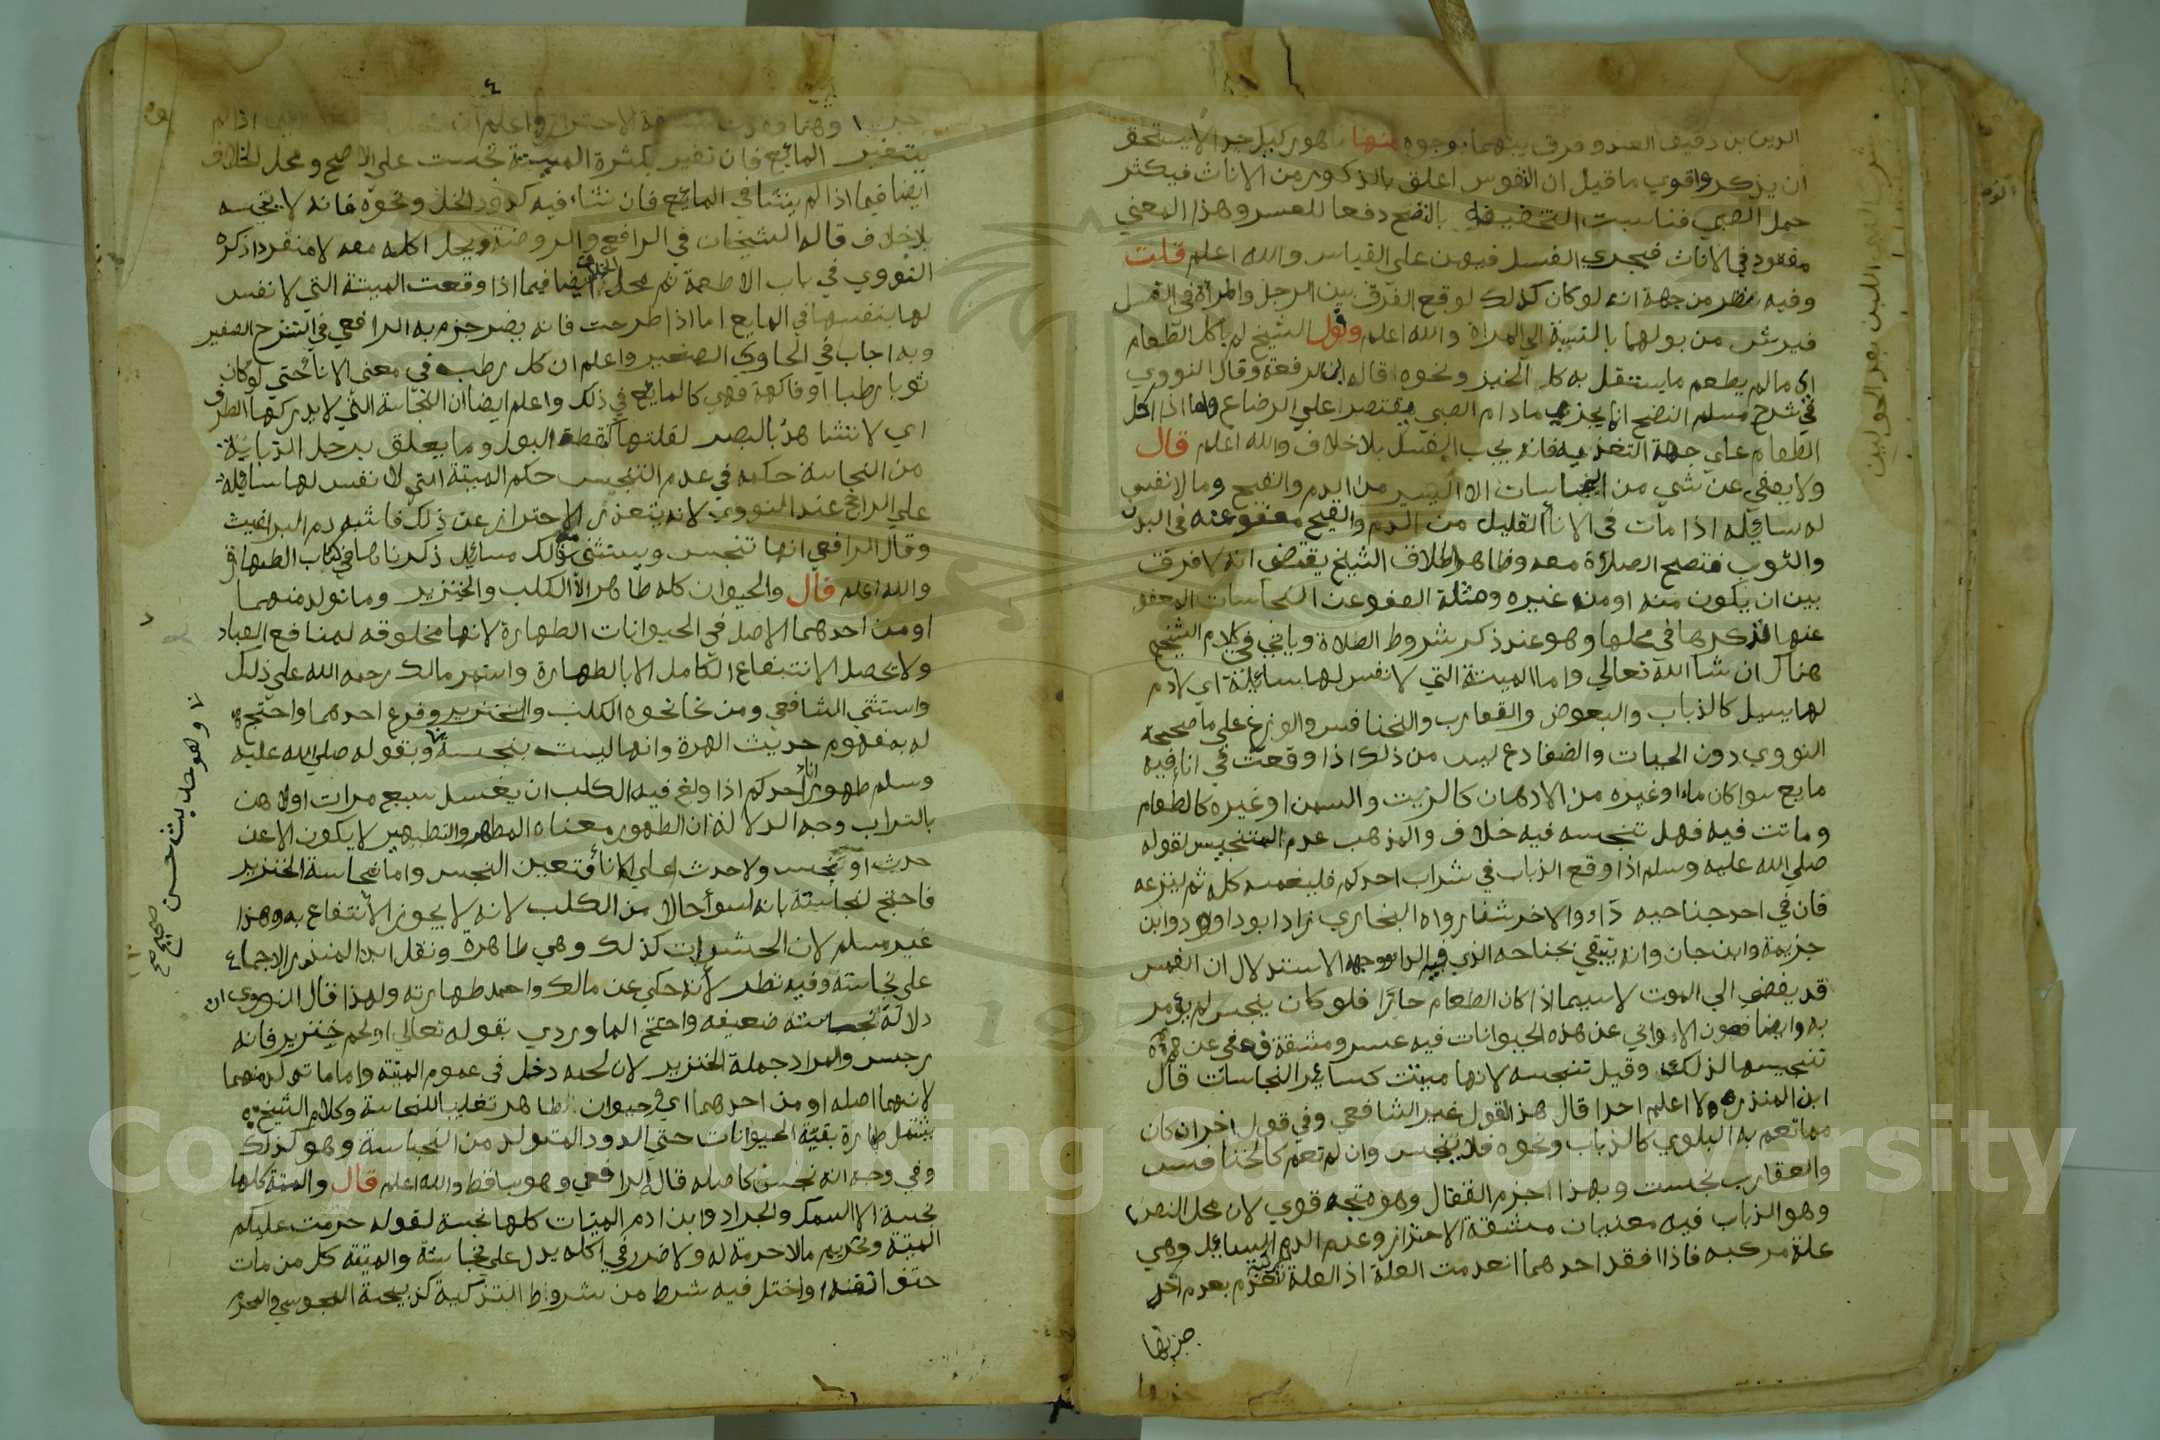 الدين بن دقيق العيد وفرق بينهما بوجوه منها ما هو ركيك جدا لا يستحق
ان يذكر واقوي ما قيل ان النفوس اعلق بالذكور من الاناث فيكثر
حمل الصبي فناسبت التخفيف بالنضح دفعا للعسر وهذا المعني
مفقود في الاناث فيجري الغسل فيهن علي القياس والله اعلم قلت
وفيه نظر من جهة انه لو كان كذلك لوقع الفرق بين الرجل والمراة في الغسل
فيرش من بولهما بالنسبة الي المراة والله اعلم وقول الشيخ لم ياكل الطعام
اي ما لم يطعم ما يستقل به كالخبز ونحوه قاله ابن الرفعة وقال النووي
في شرح مسلم النضح انما يجزي ما دام الصبي يقتصر علي الرضاع واما اذا اكل
الطعام علي جهة التغذيه فانه يجب الغسل بلا خلاف والله اعلم قال
ولا يعفي عن شي من النجاسات الا اليسير من الدم والقيح وما لا نفس
له سايلة اذا مات في الانا القليل من الدم والقيح معفو عنه في البدن
والثوب فتصح الصلاة معه وظاهر اطلاق الشيخ يقتضي انه لا فرق
بين ان يكون منه او من غيره ومثلة العفو عن النجاسات المعفو
عنها نذكرها في محلها وهو عند ذكر شروط الصلاة وياتي في كلام الشيخ
هناك ان شا الله تعالي واما الميتة التي لا نفس لها سائلة اي لا دم
لها يسيل كالذباب والبعوض والعقارب والخنافس والوزغ علي ما صححه
النووي دون الحيات والضفادع ليس من ذلك اذا وقعت في انا فيه
مايع سوا كان ماء او غيره من الادهان كالزيت والسمن او غيره كالطعام
وماتت فيه فهل تنجسه فيه خلاف والمذهب عدم التنجيس لقوله
صلي الله عليه وسلم اذا وقع الذباب في شراب احدكم فليغمسه كله ثم لينزعه
فان في احد جناحيه داء والاخر شفا رواه البخاري زاد ابو داود وابن
خزيمة وابن حبان وانه يتقي بجناحه الذي فيه الداء ووجه الاستدلال ان الغمس
قد يفضي الي الموت لا سيما اذا كان الطعام حارا فلو كان ينجس لم يؤمر
به وايضا فصون الاواني عن هذه الحيوانات فيه عسر ومشقة فعفي عن
تنجيسها لذلك وقيل تنجسه لانها ميتة كسائر النجاسات قال
ابن المنذر ولا اعلم احدا قال هذا القول غير الشافعي وفي قول اخر ان كان
مما تعم به البلوي كالذباب ونحوه فلا ينجس وان لم تعم كالخنافس
والعقارب نجست وبهذا جزم القفال وهو متجه قوي لان محل النص
وهو الذباب فيه معنيان مشقة الاحتراز وعدم الدم السايل وهي
علة مركبه فاذا فقد احدهما انعدمت العلة اذ العلة المركبة تعدم بعدم احد
جزيها
اللبن بعد الحولين
وهنا فقدت مشقة الاحتراز واعلم ان محل اذا لم
يتغير المايع فان تغير بكثرة الميتة نجست علي الاصح ومحل الخلاف
ايضا فيما اذا لم ينشا في المايع فان نشاء فيه كدود الخل ونحوه فانه لا ينجسه
بلا خلاف قاله الشيخان في الرافعي والروضة ويحل اكله معه لا منفردا ذكره
النووي في باب الاطعمة ثم محل الخلاف ايضا فيما اذا وقعت الميتة التي لا نفس
لها بنفسها في المايع اما اذا طرحت فانه يضر جزم به الرافعي في الشرح الصغير
وبه اجاب في الحاوي الصغير واعلم ان كل رطب في معني الانا حتي لو كان
ثوبا رطبا او فاكهة فهي كالمايع في ذلك واعلم ايضا ان النجاسة التي لا يدركها الطرف
اي لا تشاهد بالبصر لقلتها كنقطة البول وما يعلق برجل الذبابة
من النجاسة حكمه في عدم التنجيس حكم الميتة التي لا نفس لها سايلة
علي الراجح عند النووي لانه يتعذر الاحتراز عن ذلك فاشبه دم البراغيث
وقال الرافعي انها تنجس ويستثني مع ذلك مسائل ذكرناها في كتاب الطهارة
والله اعلم قال والحيوان كله طاهر الا الكلب والخنزير وما تولد منهما
او من احدهما الاصل في الحيوانات الطهارة لانها مخلوقه لمنافع العباد
ولا يحصل الانتفاع الكامل الا بالطهارة واستمر مالك رحمه الله علي ذلك
واستثني الشافعي ومن نحا نحوه الكلب والخنزير وفرع احدهما واحتج
له بمفهوم حديث الهرة وانها ليست بنجسة وبقوله صلي الله عليه
وسلم طهور اناء احدكم اذا ولغ فيه الكلب ان يغسل سبع مرات اولاهن
بالتراب وجه الدلالة ان الطهور معناه المطهر والتطهير لا يكون الا عن
حدث او نجس ولا حدث علي الانا فتعين النجس واما نجاسة الخنزير
فاحتج لنجاسته بانه اسوأ حالا من الكلب لانه لا يجوز الانتفاع به وهذا
غير مسلم لان الحشرات كذلك وهي طاهرة ونقل ابن المنذر الاجماع
علي نجاسته وفيه نظر لانه حكي عن مالك واحمد طهارته ولهذا قال النووي ان
دلالة نجاسته ضعيفه واحتج الماوردي بقوله تعالي او لحم خنزير فانه
رجس والمراد جملة الخنزير لان لحمه دخل في عموم الميتة واما ما تولد منهما
لانهما اصله او من احدهما اي وحيوان طاهر تغليبا للنجاسة وكلام الشيخ
يشمل طهارة بقية الحيوانات حتي الدود المتولد من النجاسة وهو كذلك
وفي وجه انه نجس كاصله قال الرافعي وهو ساقط والله اعلم قال والميتة كلها
نجسة الا السمك والجراد وابن ادم الميتات كلها نجسة لقوله حرمت عليكم
الميتة وتحريم ما لا حرمة له ولا ضرر في اكله يدل علي نجاسته والميتة كل من مات
حتف انفه او اختل فيه شرط من شروط التزكية كذبيحة المجوسي والمحرم
وهو حديث حسن
صحيح
Copyright © King Saud University